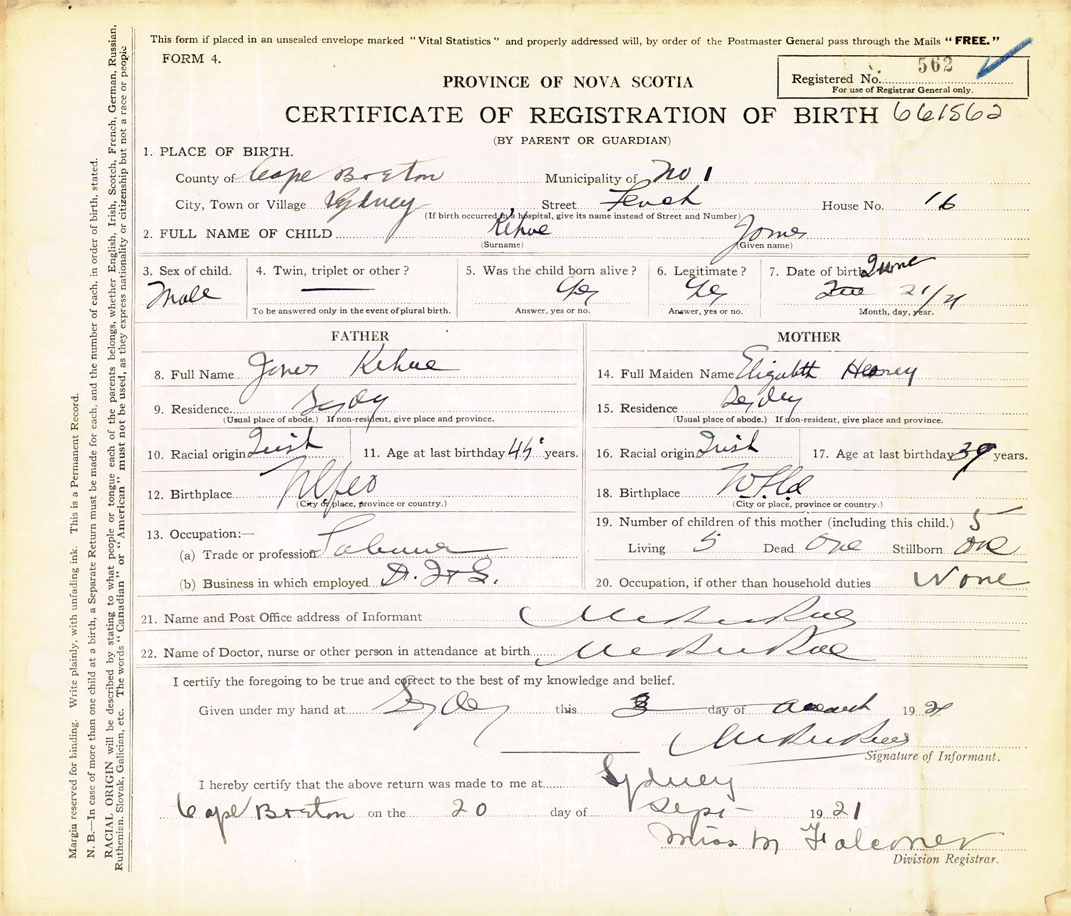 This form if placed in an unsealed envelope marked "Vital Statistics" and properly addressed will, by order of the Postmaster General pass through the Mails "FREE."
FORM 4.
Registered No. 562
For use of Registrar General only.
PROVINCE OF NOVA SCOTIA
CERTIFICATE OF REGISTRATION OF BIRTH 661562
(BY PARENT OR GUARDIAN)
1. PLACE OF BIRTH.
County of Cape Breton Municipality of No 1
City, Town or Village Sydney Street House No. 16
(If birth occurred in a hospital, give its name instead of Street and Number)
2. FULL NAME OF CHILD Kehoe James
(Surname) (Given name)
3. Sex of child. 4. Twin, triplet or other? 5. Was the child born alive? 6. Legitimate? 7. Date of birth June
Male — Yes Yes 21/21
To be answered only in the event of plural birth. Answer, yes or no. Answer, yes or no. Month, day, year.
FATHER
8. Full Name James Kehoe
9. Residence Sydney
(Usual place of abode.) If non-resident, give place and province.
10. Racial origin Irish 11. Age at last birthday 45 years.
12. Birthplace
(City or place, province or country.)
13. Occupation:—
(a) Trade or profession Labourer
(b) Business in which employed
MOTHER
14. Full Maiden Name Elizabeth
15. Residence Sydney
(Usual place of abode.) If non-resident, give place and province.
16. Racial origin Irish 17. Age at last birthday 39 years.
18. Birthplace
(City or place, province or country.)
19. Number of children of this mother (including this child.) 5
Living 5 Dead One Stillborn one
20. Occupation, if other than household duties None
21. Name and Post Office address of Informant
22. Name of Doctor, nurse or other person in attendance at birth
I certify the foregoing to be true and correct to the best of my knowledge and belief.
Given under my hand at Sydney this 3 day of August 1921
Signature of Informant.
I hereby certify that the above return was made to me at Sydney
Cape Breton on the 20 day of Sept 1921
Miss M Falconer
Division Registrar.
Margin reserved for binding. Write plainly, with unfading ink. This is a Permanent Record.
N. B.—In case of more than one child at a birth, a Separate Return must be made for each, and the number of each, in order of birth, stated.
RACIAL ORIGIN will be described by stating to what people or tongue each of the parents belongs, whether English, Irish, Scotch, French, German, Russian,
Ruthenian, Slovak, Galician, etc. The words "Canadian" or "American" must not be used, as they express nationality or citizenship but not a race or people